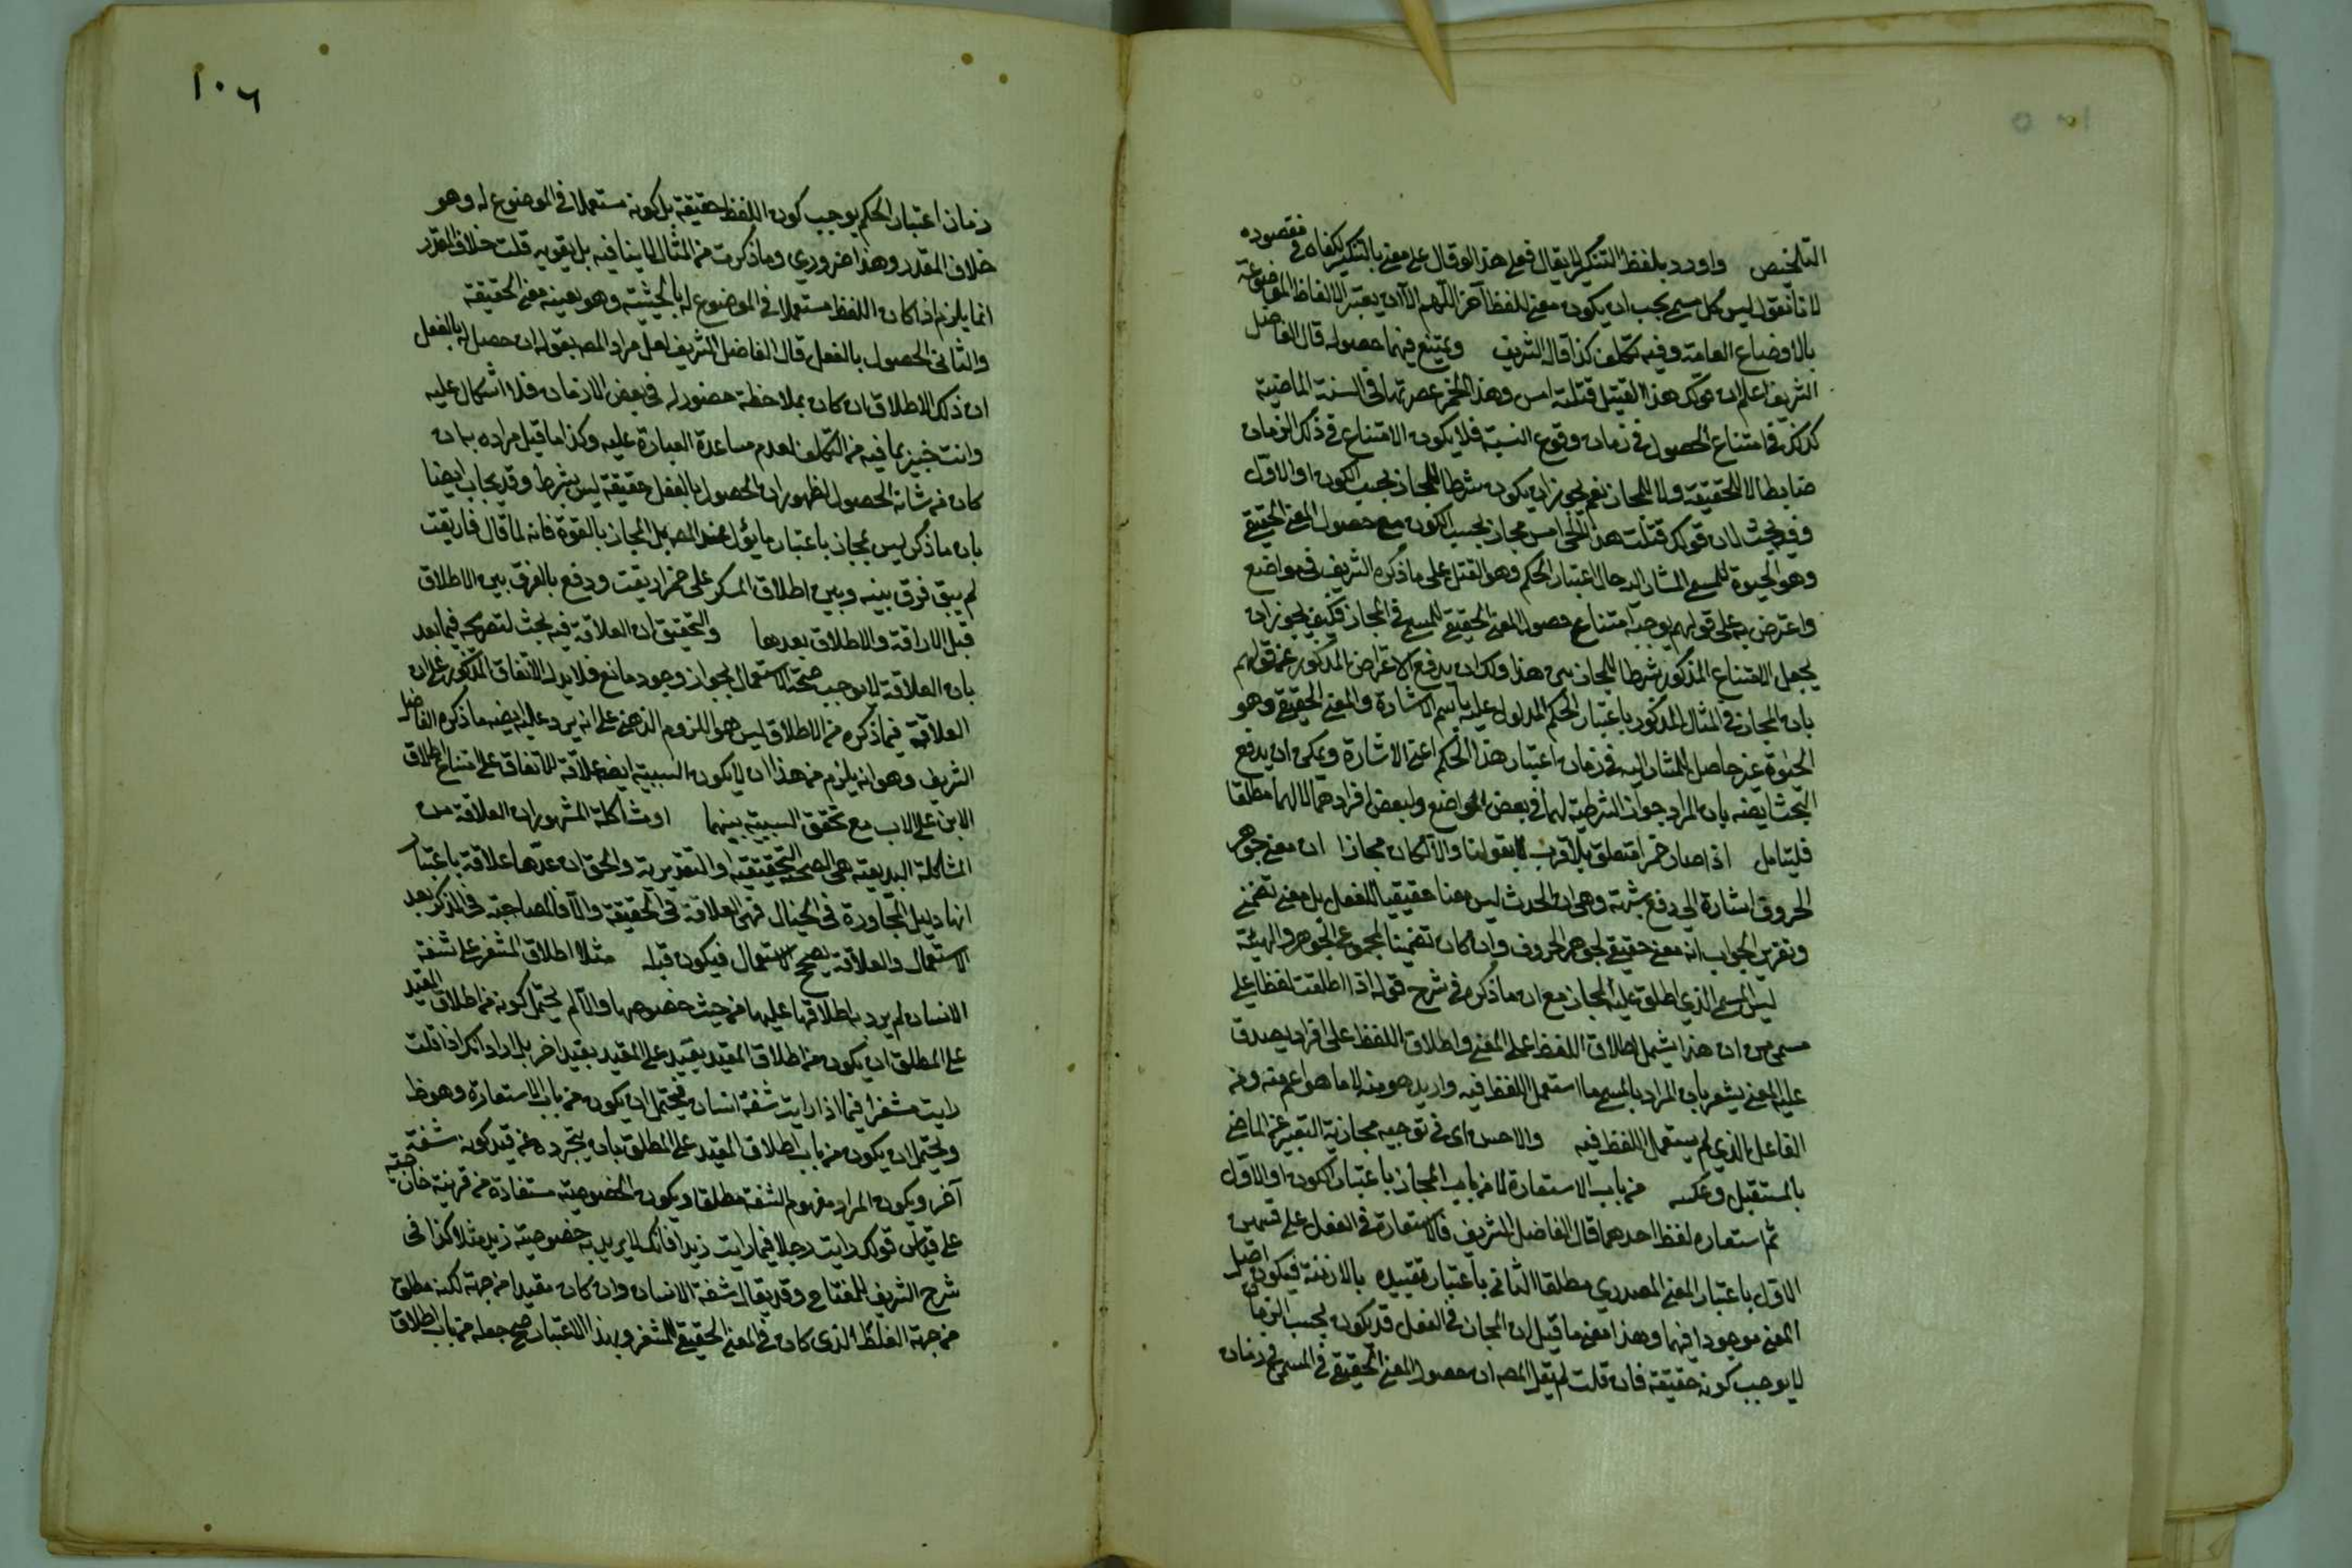 التلخيص واورد بلفظ التنكير لا يقال فعلى هذا لو قال على معنى بالتنكير لكفاه في مقصوده
لانا نقول ليس كل مسمى يجب ان يكون معنى للفظ آخر اللهم الا ان يعتبر الالفاظ الموضوعة
بالاوضاع العامة وفيه تكلف كذا قاله الشريف ويمتنع فيهما حصوله قال الفاضل
الشريف اعلم ان قولك هذا القتيل قتلته امس وهذا الخمر عصرتها في السنة الماضية
في امتناع الحصول في زمان وقوع النسبة فلا يكون الامتناع في ذلك الزمان
ضابطا لا للحقيقة ولا للمجاز نعم يجوز ان يكون شرطا للمجاز بحسب الكون او الاول
وفيه بحث لان قولك قتلت هذا امس مجاز بحسب الكون مع حصول المعنى الحقيقي
وهو الحيوة للمسمى المشار اليه حال اعتبار الحكم وهو القتل على ما ذكره الشريف في مواضع
واعترض به على قولهم يوجب امتناع حصول المعنى الحقيقي للمسمى في المجاز فكيف يجوز ان
يجعل الامتناع المذكور شرطا للمجاز بقي هذا ولك ان يدفع الاعتراض المذكور عن قولهم
بان المجاز في المثال المذكور باعتبار الحكم المدلول عليه باسم الاشارة والمعنى الحقيقي وهو
الحيوة غير حاصل للمشار اليه في زمان اعتبار هذا الحكم اعنى الاشارة ويمكن ان يدفع
البحث ايضه بان المراد جواز الشرطية لهما في بعض المواضع ولبعض افرادهما لا لهما مطلقا
فليتامل اذا صار خمرا متعلق بلا قرب لا بقولنا والا لكان مجازا ان معنى جوهر
الحروف اشارة الى دفع شبهة وهى ان الحدث ليس معنا حقيقيا للفعل بل معنى تضمنى
وتقرير الجواب انه معنى حقيقي لجوهر الحروف وان كان تضمنيا لمجموع الجوهر والهيئة
ليس المسمى الذي اطلق عليه المجاز مع ان ما ذكره في شرح قوله اذا اطلقت لفظا على
مسمى من ان هذا يشمل اطلاق اللفظ على المعنى واطلاق اللفظ على افراد يصدق
عليها المعنى يشعر بان المراد بالمسمى ما استعمل اللفظ فيه واريد هو منه لا ما هو اعم منه ومن
الفاعل الذي لم يستعمل اللفظ فيه والاحسن اى في توجيه مجازية التعبير عن الماضى
بالمستقبل وعكسه من باب الاستعارة لا من باب المجاز باعتبار الكون او الاول
ثم استعاره لفظ احدهما قال الفاضل الشريف فالاستعارة في الفعل على قسمين
الاول باعتبار المعنى المصدري مطلقا الثانى باعتبار تقييده بالازمنة فيكون اصل
المعنى موجودا فيهما وهذا معنى ما قيل ان المجاز في الفعل قد يكون بحسب الزمان
لا يوجب كونه حقيقة فان قلت لم يقل المصه ان حصول المعنى الحقيقي في المسمى في زمان
١٠٦
زمان اعتبار الحكم يوجب كون اللفظ حقيقة بل كونه مستعملا في الموضوع له وهو
خلاف المقدر وهذا ضروري وما ذكرت من المثال لا ينافيه بل يقويه قلت خلاف المقدر
انما يلزم اذا كان اللفظ مستعملا في الموضوع له بالحيثية وهو بعينه معنى الحقيقة
والثانى الحصول بالفعل قال الفاضل الشريف لعل مراد المصه بقوله ان حصل له بالفعل
ان ذلك الاطلاق ان كان بملاحظة حضوره له في بعض الازمان فلا اشكال عليه
وانت خبير بما فيه من التكلف لعدم مساعدة العبارة عليه وكذا ما قيل مراده بما ن
كان من شانه الحصول لظهور ان الحصول بالفعل حقيقة ليس بشرط وقد يجاب ايضا
بان ما ذكر ليس بمجاز باعتبار ما يؤل عند المصه بل المجاز بالقوة فانه لما قال فاريقت
لم يبق فرق بينه وبين اطلاق المسكر على خمر اريقت ودفع بالفرق بين الاطلاق
قبل الاراقة والاطلاق بعدها والتحقيق ان العلاقة فيه بحث لتصريحه فيما بعد
بان العلاقة لا يوجب صحة الاستعمال لجواز وجود مانع فلا يدل الاتفاق المذكور على ان
العلاقة فيما ذكره من الاطلاق ليس هو اللزوم الذهنى على انه يرد عليه ايضه ما ذكره الفاضل
الشريف وهو انه يلزم من هذا ان لا يكون السببية ايضه علاقة للاتفاق على امتناع اطلاق
الابن على الاب مع تحقق السببية بينهما او مشاكلة المشهور ان العلاقة من
المشاكلة البديعية هى الصحبة التحقيقية او التقديرية والحق ان عدها علاقة باعتبار
انها دليل المجاورة في الخيال فهى العلاقة في الحقيقة والا فالمصاحبة في الذكر بعد
الاستعمال والعلاقة يصحح الاستعمال فيكون قبله مثلا اطلاق المشفر على شفة
الانسان لم يرد به اطلاقها عليها من حيث خصوصها والا لم يحتمل كونه من اطلاق المقيد
على المطلق ان يكون من اطلاق المقيد بقيد على المقيد بقيد اخر بل اراد انك اذا قلت
رايت مشفرا فيما اذا رايت شفة انسان يحتمل ان يكون من باب الاستعارة وهو ظ
ويحتمل ان يكون من باب اطلاق المقيد على المطلق بان يتجرده عن قيد كونه شفة
آخر ويكون المراد مفهوم الشفة مطلقا ويكون الخصوصية مستفادة من قرينة خارجية
على قياس قولك رايت رجلا فيما رايت زيدا فانك لا يريد به خصوصية زيد مثلا كذا في
شرح الشريف للمفتاح وقد يقال شفة الانسان وان كان مقيدا من جهة لكنه مطلق
من جهة الغلظ الذى كان في المعنى الحقيقي للمشفر وبهذا الاعتبار صح جعله من باب اطلاق